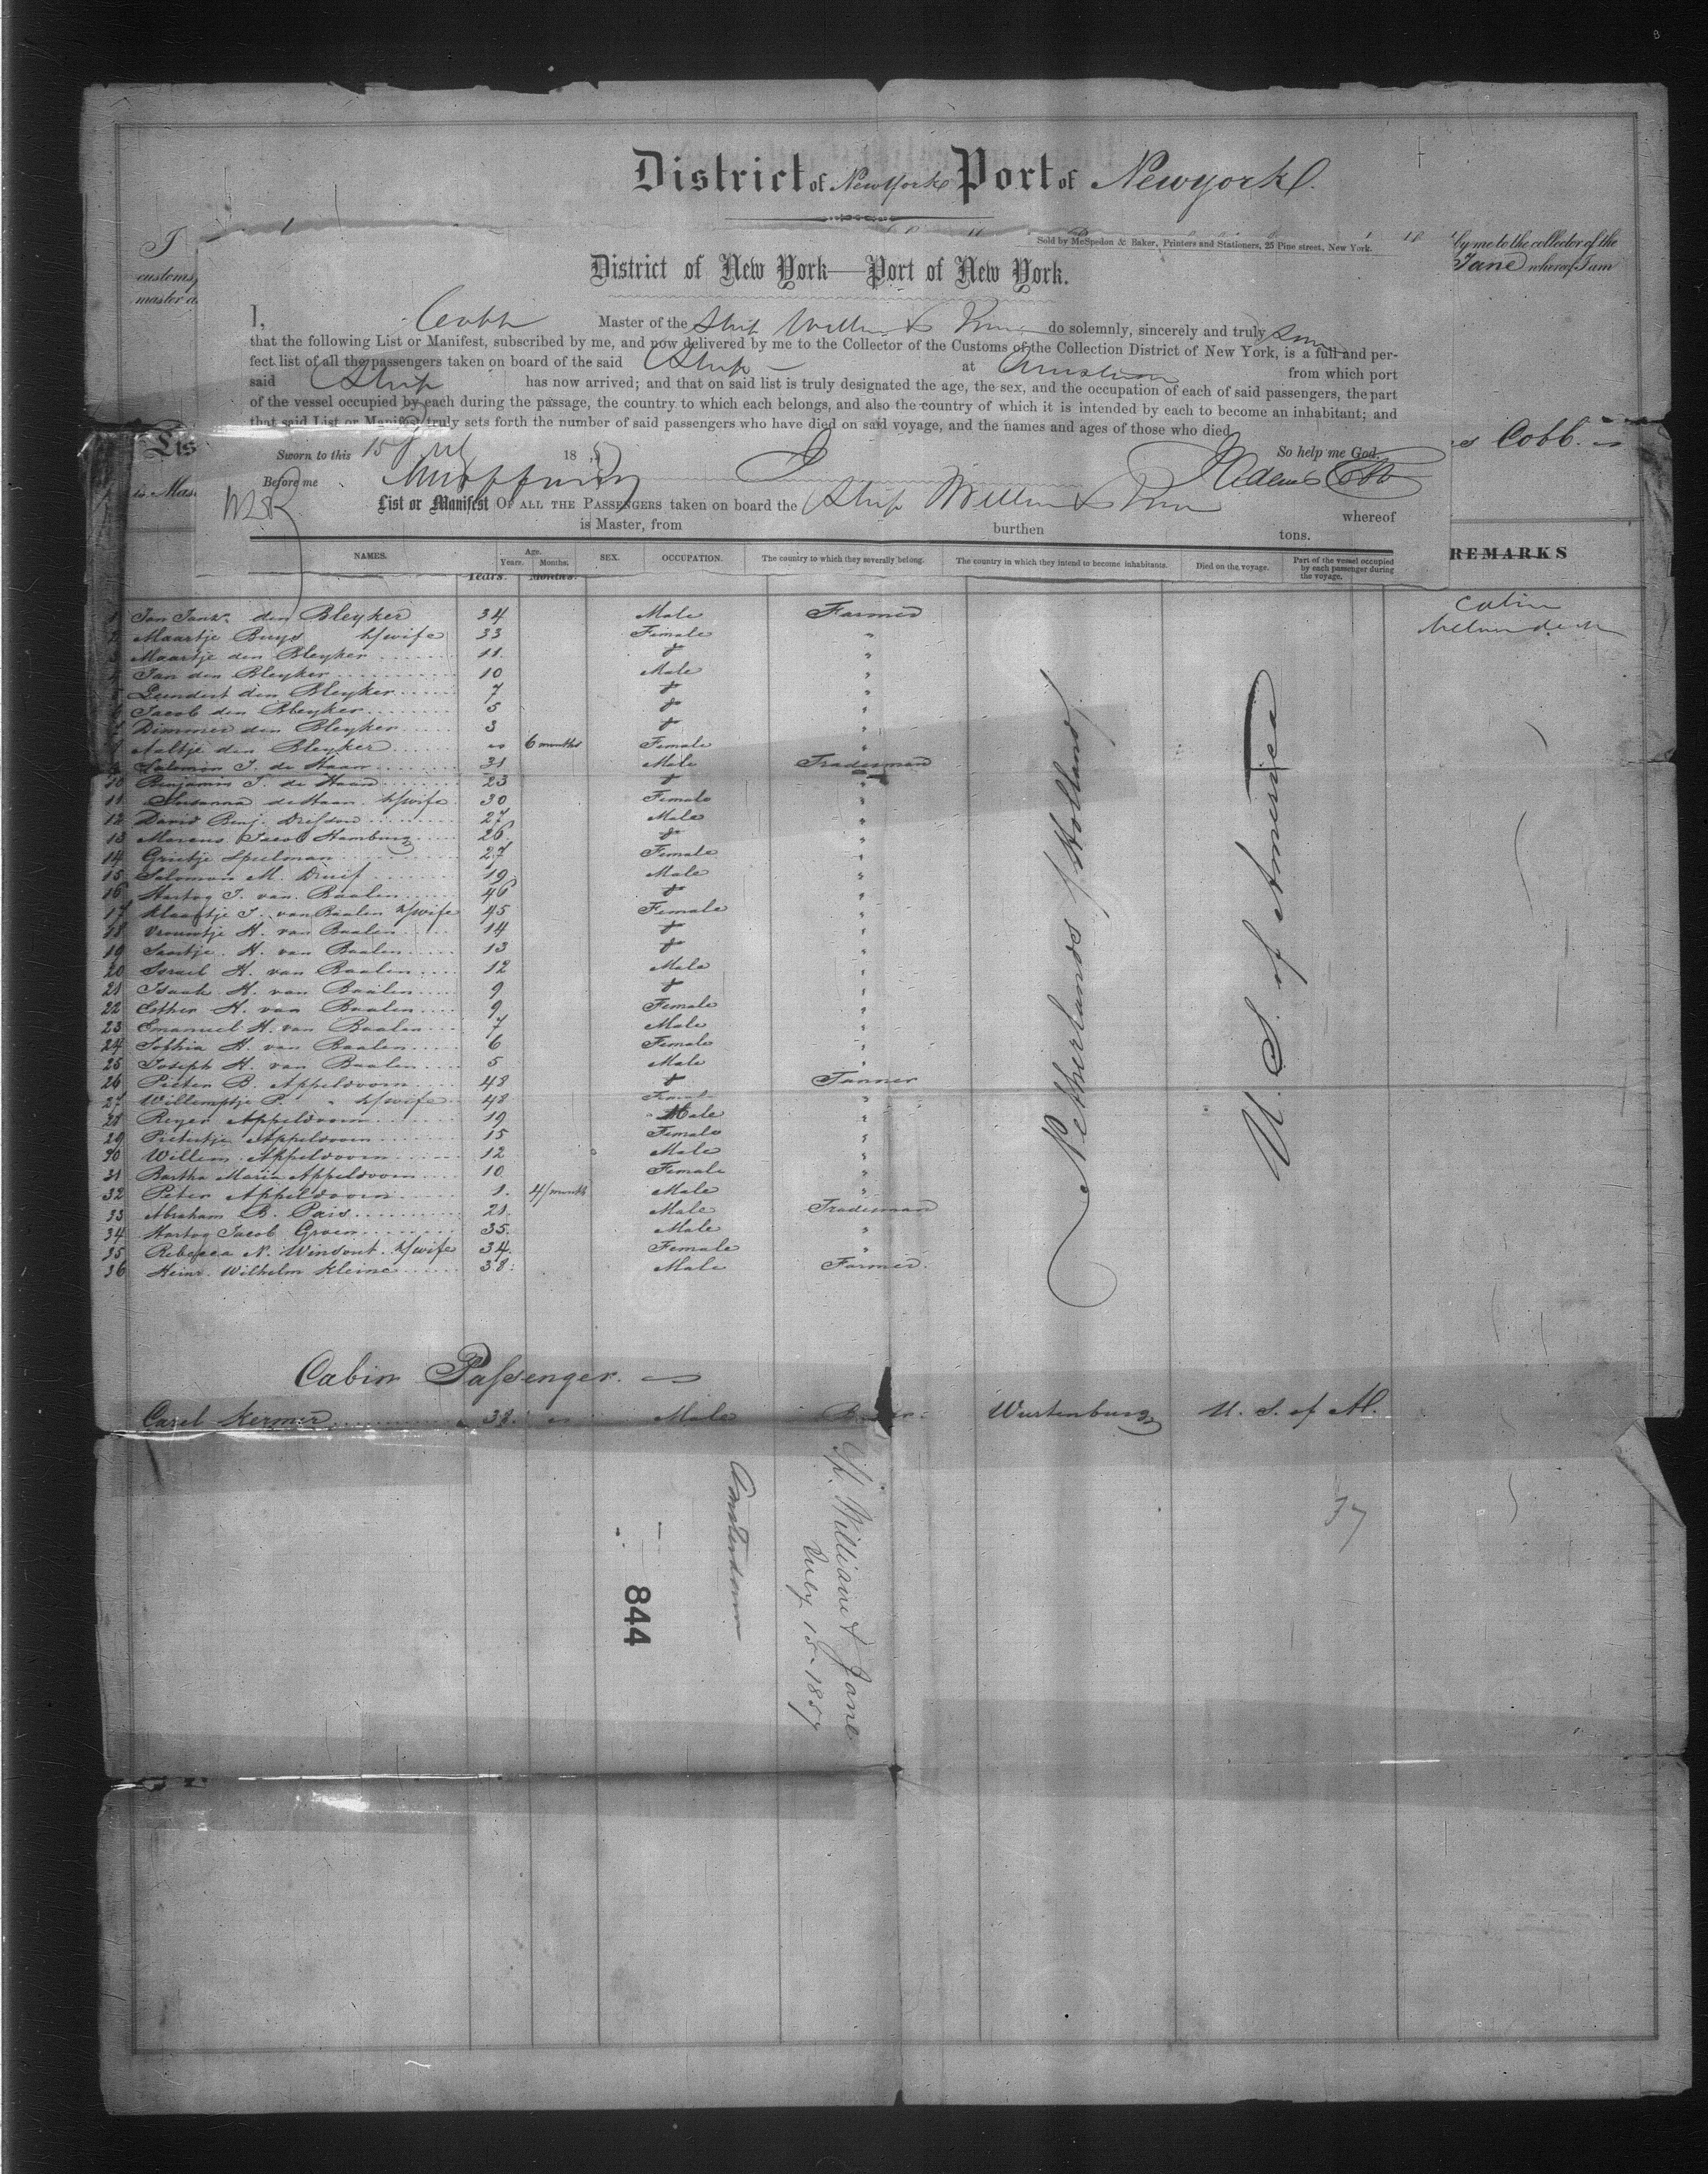 8
District of New York Port of Newyork.
Sold by McSpedon & Baker, Printers and Stationers, 25 Pine street, New York.
I
by me to the collector of the
customs,
Jane whereof I am
master a
District of New York—Port of New York.
I, Cobb Master of the Ship do solemnly, sincerely and truly
that the following List or Manifest, subscribed by me, and now delivered by me to the Collector of the Customs of the Collection District of New York, is a full and per-
fect list of all the passengers taken on board of the said Ship at from which port
said Ship has now arrived; and that on said list is truly designated the age, the sex, and the occupation of each of said passengers, the part
of the vessel occupied by each during the passage, the country to which each belongs, and also the country of which it is intended by each to become an inhabitant; and
that said List or Manifest truly sets forth the number of said passengers who have died on said voyage, and the names and ages of those who died.
Cobb.
Sworn to this 15 July 18 So help me God.
Before me
List or Manifest OF ALL THE PASSENGERS taken on board the Ship whereof
is Master, from burthen tons.
NAMES. Age. Years. Months. SEX. OCCUPATION. The country to which they severally belong. The country in which they intend to become inhabitants. Died on the voyage. Part of the vessel occupied by each passenger during the voyage. REMARKS
Years. Months.
1 Jan Jansz. den Bleyker 34 Male Farmer
2 Maartje Buys h/wife 33 Female "
3 Maartje den Bleyker 11. "
4 Jan den Bleyker 10 Male "
5 Leendert den Bleyker 7 "
6 Jacob den Bleyker 5 "
7 Dimmer den Bleyker 3 "
8 Aaltje den Bleyker 6 months Female "
9 Salomon J. de Haan 31 Male Tradesman
10 Benjamin J. de Haan 23 "
11 Susanna de Haan h/wife 30 Female "
12 David Benj. 27 Male "
13 Marcus Jacob Hamburg 26 "
14 Grietje Speelman 27 Female "
15 Salomon M. Druif 19 Male "
16 Hartog J. van Baalen 46 "
17 Klaartje J. van Baalen h/wife 45 Female "
18 Vrouwtje H. van Baalen 14 "
19 Saartje H. van Baalen 13 "
20 Israel H. van Baalen 12 Male "
21 Isaak H. van Baalen 9 "
22 Esther H. van Baalen 9 Female "
23 Emanuel H. van Baalen 7 Male "
24 Sophia H. van Baalen 6 Female "
25 Joseph H. van Baalen 5 Male "
26 Pieter B. Appeldoorn 48 Farmer
27 Willemptje P. " h/wife 48 "
28 Reyer Appeldoorn 19 Male "
29 Pietertje Appeldoorn 15 Female "
30 Willem Appeldoorn 12 Male "
31 Bartha Maria Appeldoorn 10 Female "
32 Peter Appeldoorn 1. 4/month Male "
33 Abraham B. Pais 21. Male Tradesman
34 Hartog Jacob Groen 35. Male "
35 Rebecca N. h/wife 34. Female "
36 Heinr. Wilhelm Kleine 38. Male Farmer.
Netherlands / Holland /
U. S. of America
Cabin Passenger.
Carel Kermer 38. Male Wurtenburg U. S. of A.
37
Sh. William & Jane
July 15 1857
Amsterdam
844